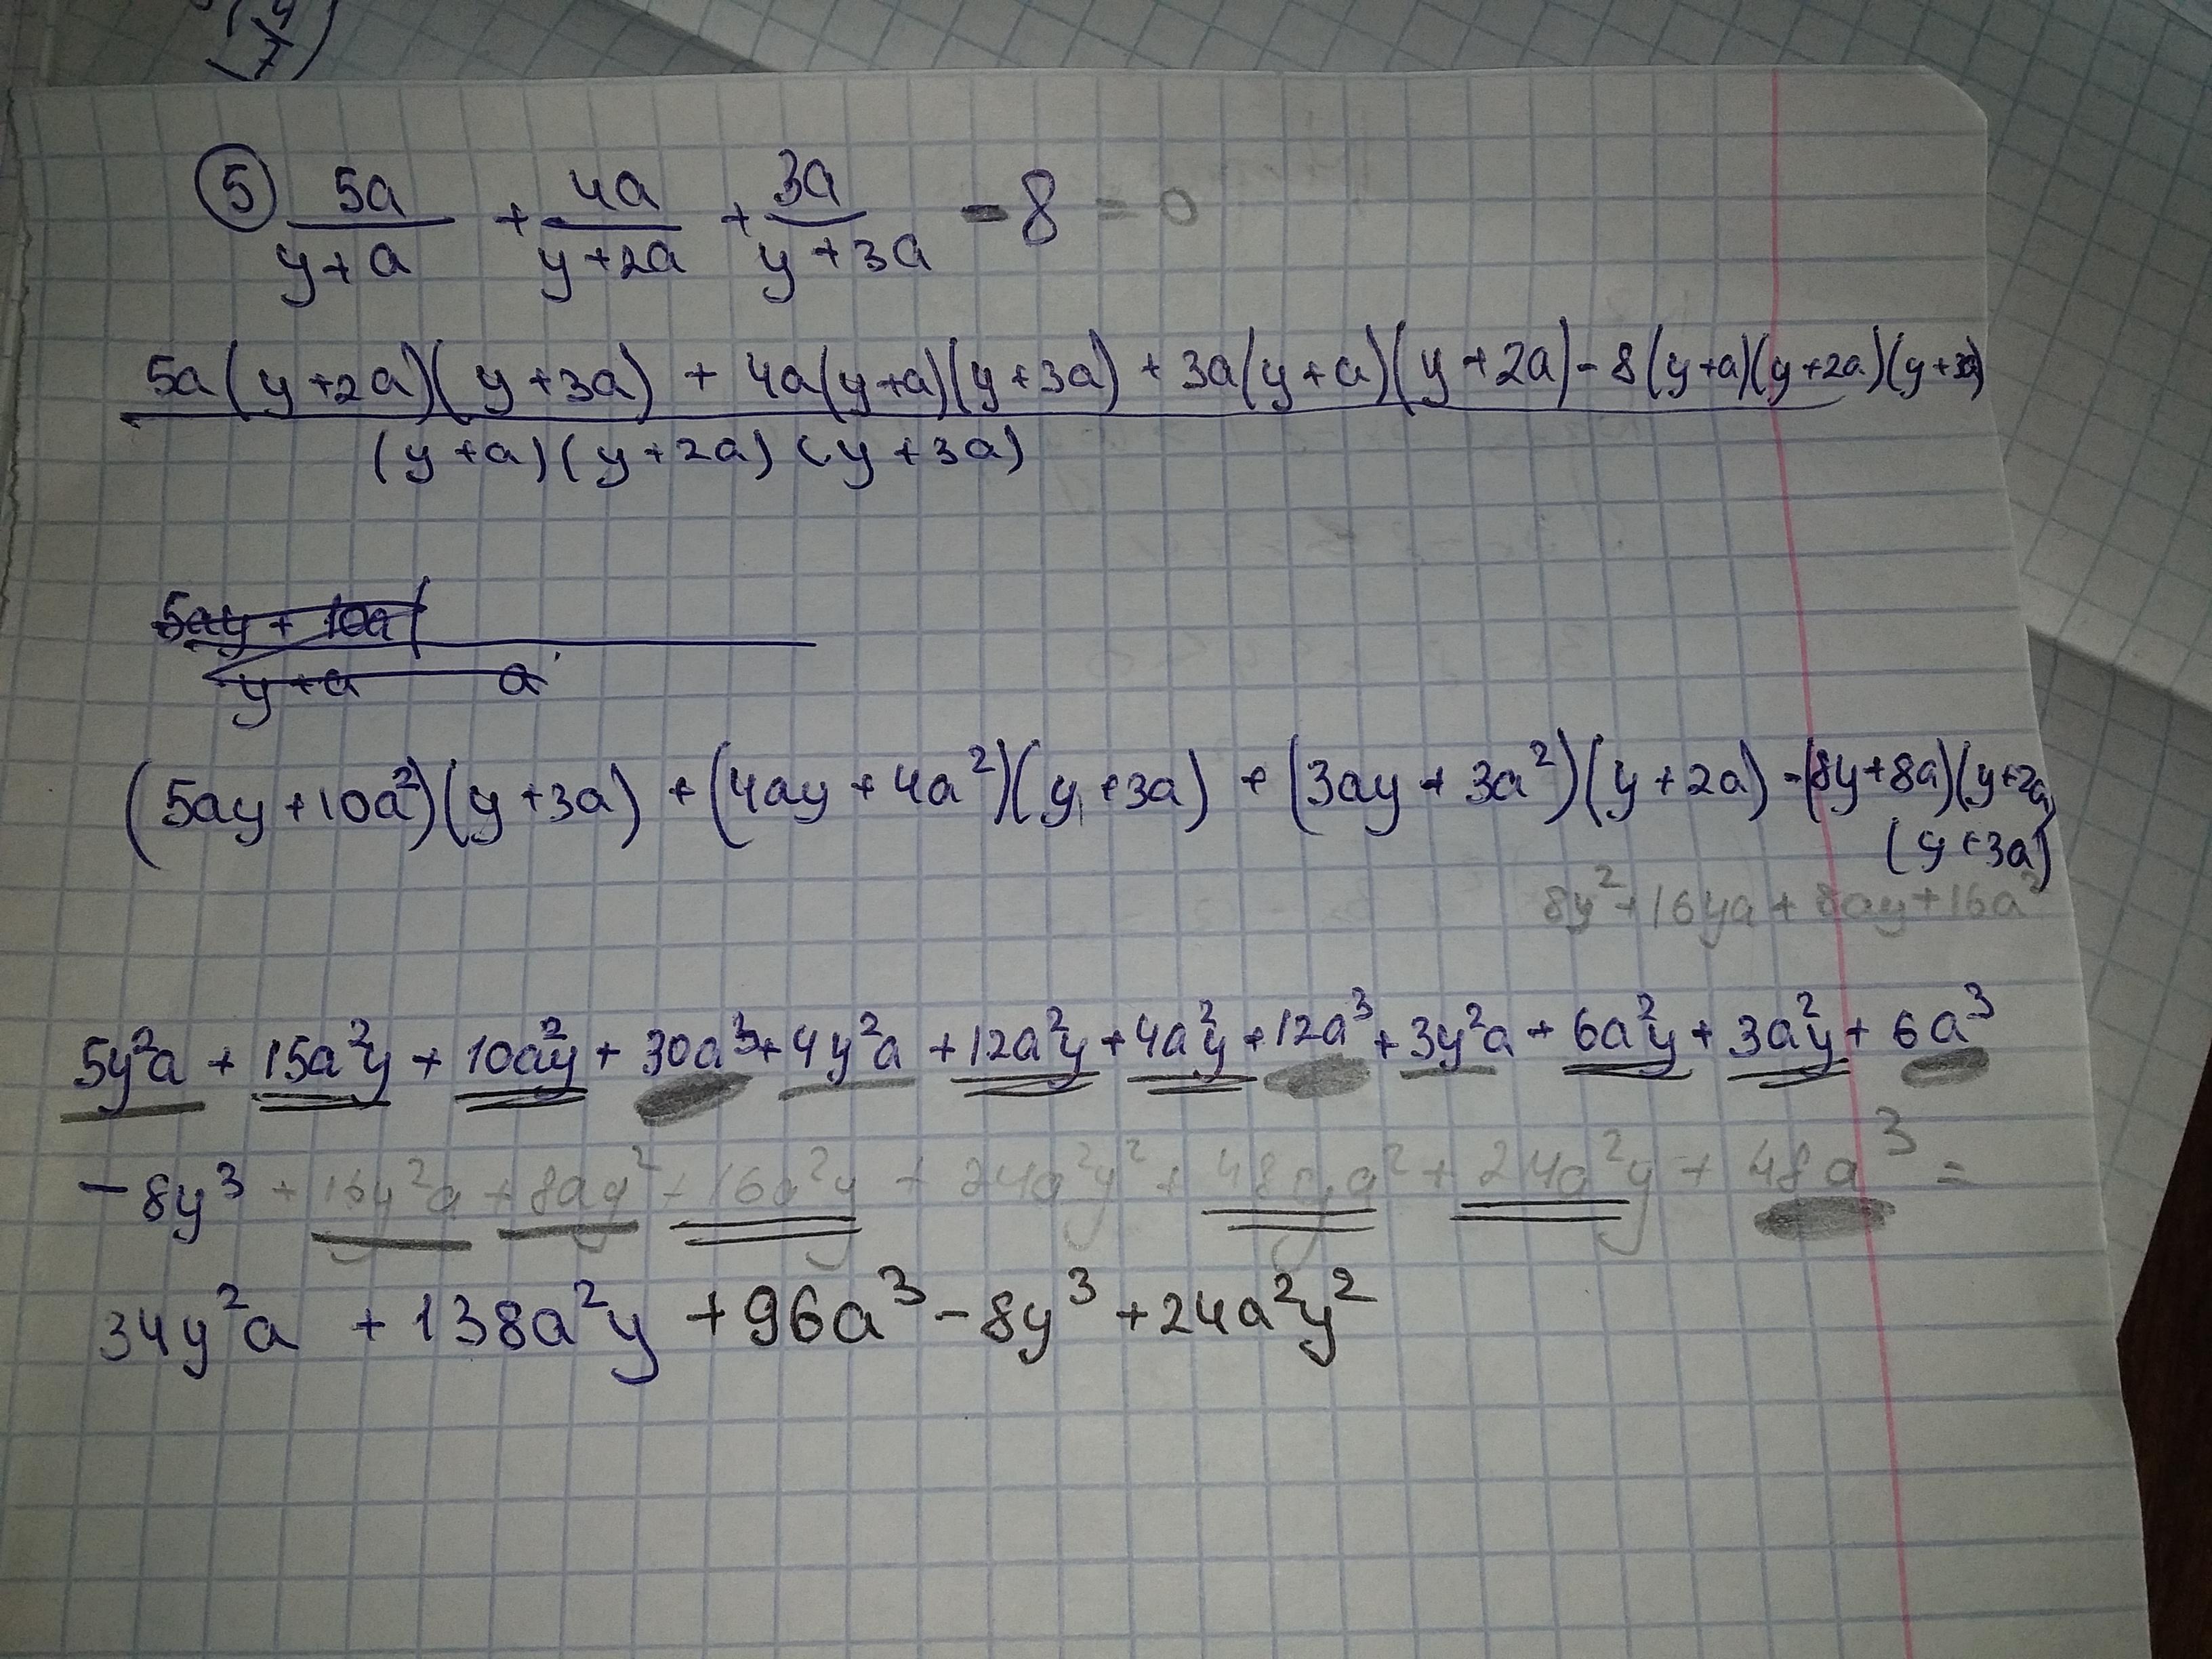 (4/7)
⑤ 5a/(y+a) + 4a/(y+2a) + 3a/(y+3a) - 8 = 0
5a(y+2a)(y+3a) + 4a(y+a)(y+3a) + 3a(y+a)(y+2a) - 8(y+a)(y+2a)(y+3a)
(y+a)(y+2a)(y+3a)
5ay + 10a
y+a a
(5ay+10a²)(y+3a) + (4ay+4a²)(y+3a) + (3ay+3a²)(y+2a) - (8y+8a)(y+2a)
(y+3a)
8y²+16ya+8ay+16a²
5y²a + 15a²y + 10a²y + 30a³ + 4y²a + 12a²y + 4a²y + 12a³ + 3y²a + 6a²y + 3a²y + 6a³
-8y³ + 16y²a + 8ay² + 16a²y + 24a²y² + 48ya² + 24a²y + 48a³ =
34y²a + 138a²y + 96a³ - 8y³ + 24a²y²